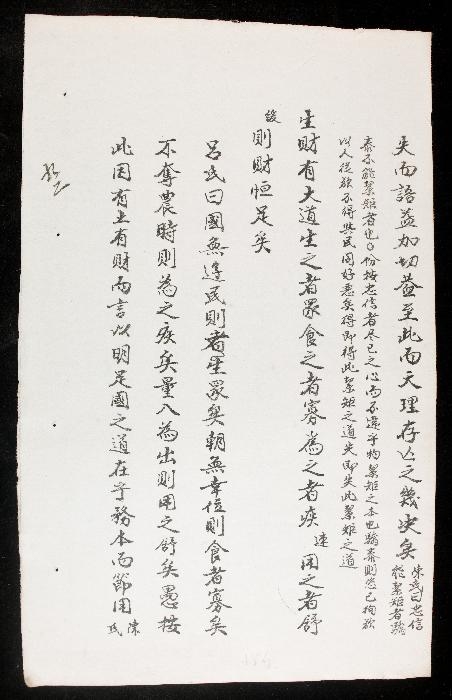 矣而語益加切蓋至此而天理存亡之幾决矣朱氏曰忠信能絜矩者驕
泰不能絜矩者也○份按忠信者尽己之心而不違乎物絜矩之本也驕泰則恣己徇欲
以人從欲不得與民同好悪矣得即得此絜矩之道失即失此絜矩之道
生財有大道生之者眾食之者寡為之者疾速用之者舒
緩則財恒足矣
呂氏曰國無遊民則者生眾矣朝無幸位則食者寡矣
不奪農時則為之疾矣量入為出則用之舒矣愚按
此因有土有財而言以明足國之道在乎務本而節用陳氏